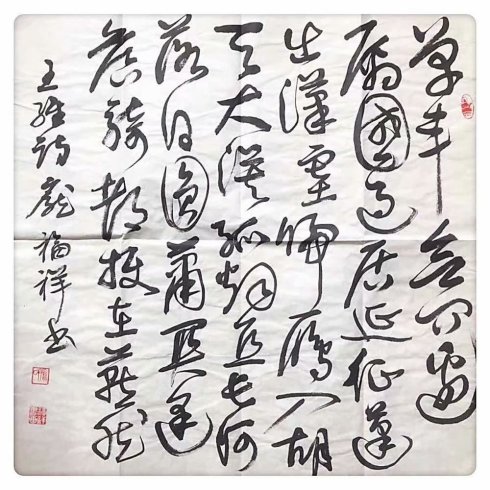 單車欲問邊
屬國過居延征蓬
出漢塞歸雁入胡
天大漠孤烟直長河
落日圓蕭關逢
候騎都護在燕然
王維詩龐福祥書